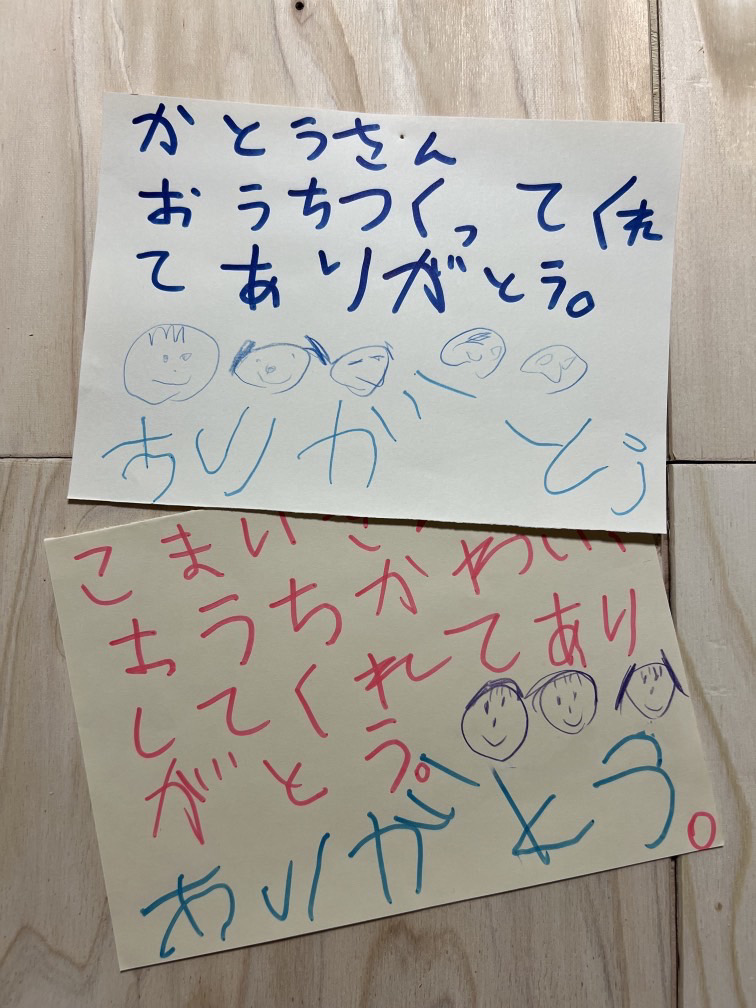 かとうさん
おうちつくってくれ
てありがとう。
ありがとう
こまいさん
おうちかわいく
してくれてあり
がとう。
ありがとう。